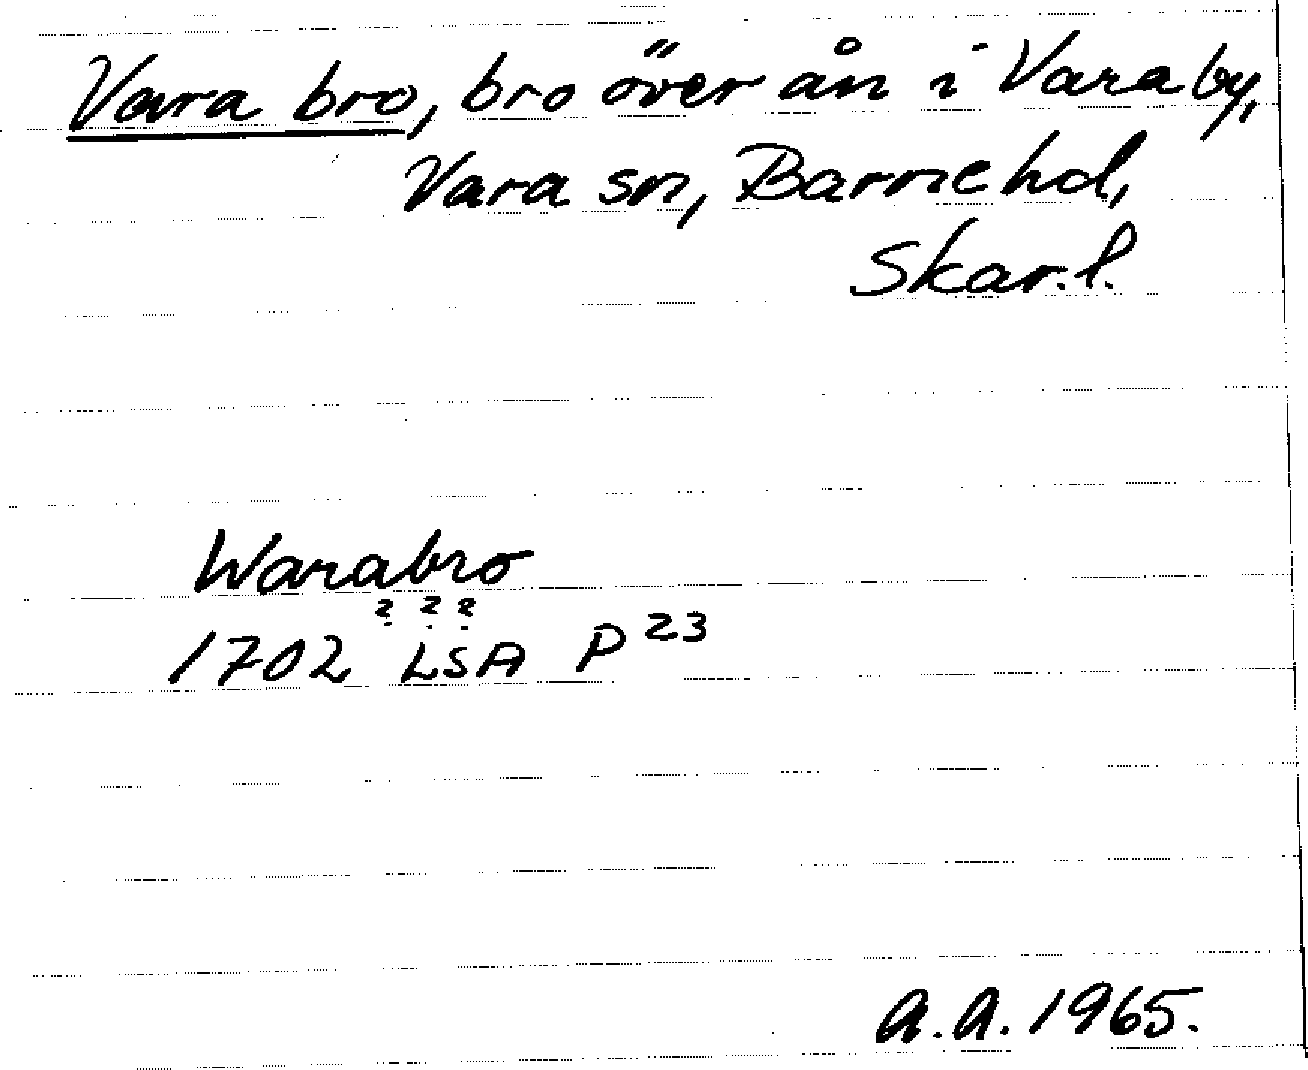 Vara bro, bro över ån i Vara by,
Vara sn, Barne hd,
Skar. l.
Warabro
? ? ?
1702 LSA P 23
A.A. 1965.